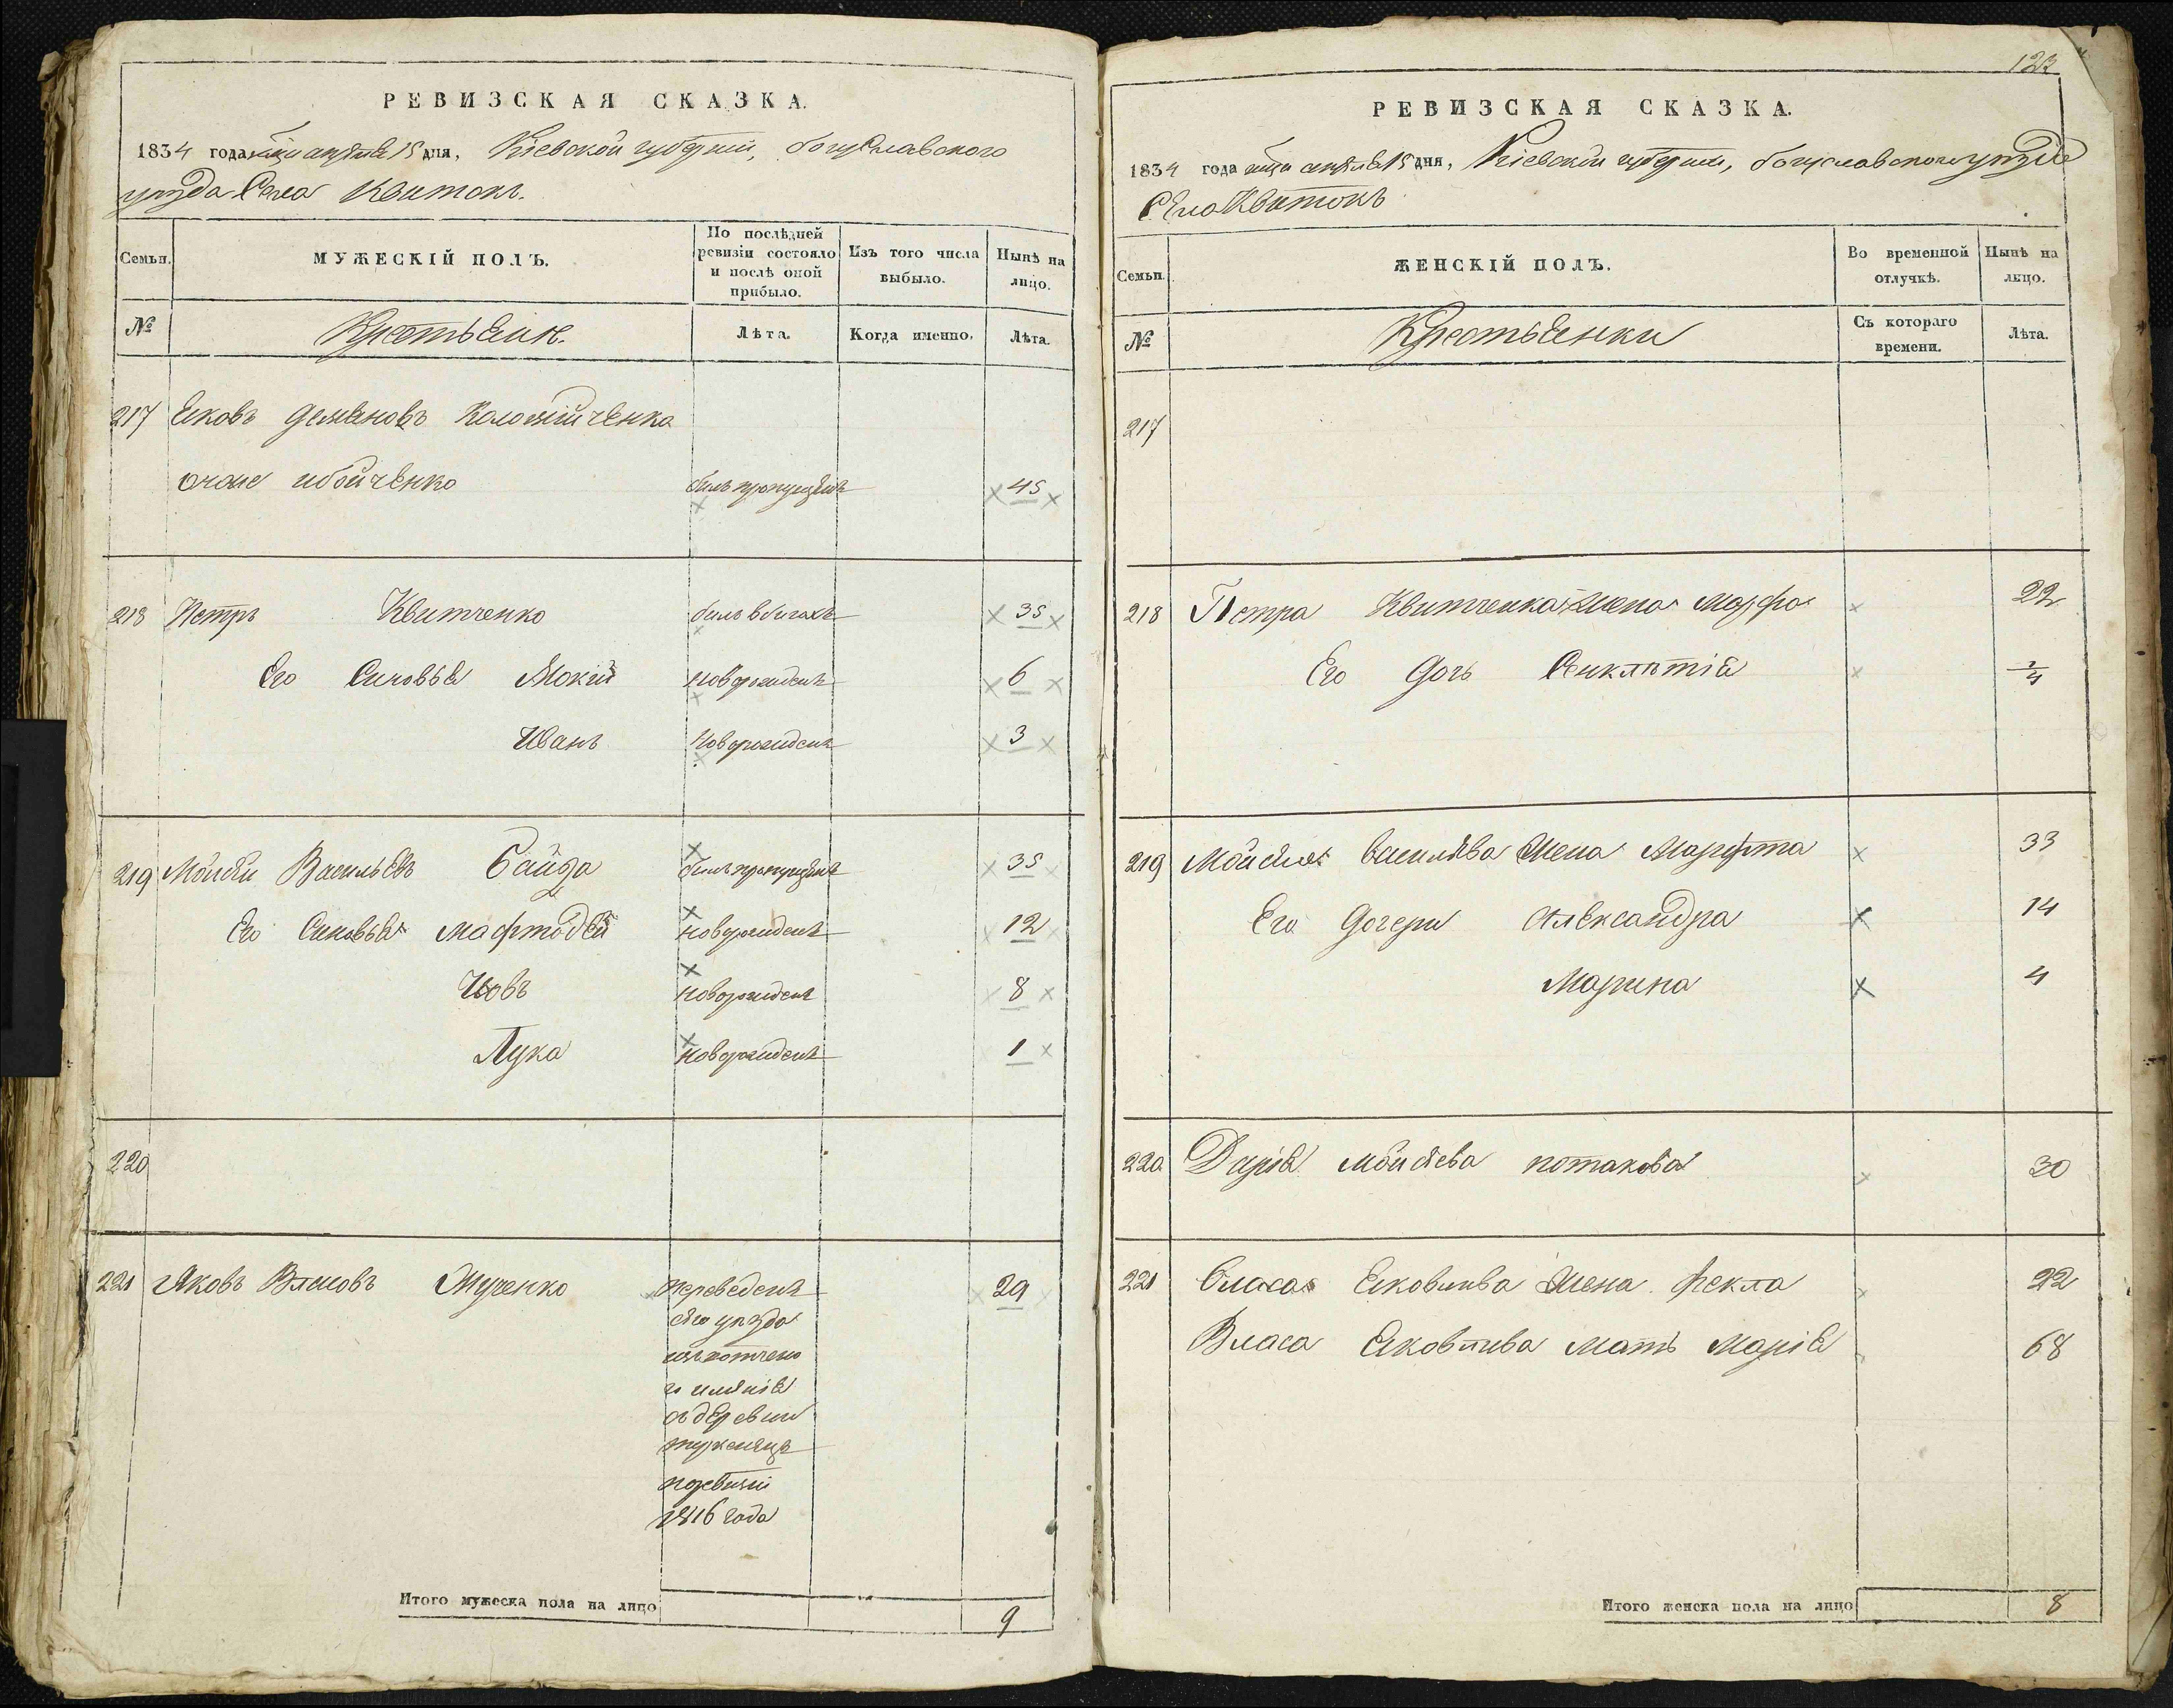 РЕВИЗСКАЯ СКАЗКА.
1834 года апреля 15 дня, Кіевской губерніи, богуславского
уѣзда Села Квитокъ.
Семьи.
МУЖЕСКІЙ ПОЛЪ.
По послѣдней ревизіи состояло и послѣ оной прибыло.
Изъ того числа выбыло.
Нынѣ на лицо.
№
Крестьяне.
Лѣта.
Когда именно.
Лѣта.
217 Яковъ Деменовъ Коломійченко
онже ибойченко былъ пропущенъ 45
218 Петръ Квитченко былъ вбегахъ 35
Его Сыновья Мокій новорожденъ 6
Иванъ Новорожденъ 3
219 Мойсей Васильевъ Байда былъ пропущенъ 35
Его Сыновья мафтодей новорожденъ 12
Иовъ новорожденъ 8
Лука новорожденъ 1
220
221 Яковъ Власовъ Мученко переведенъ 29
сего уѣзда
и имѣнія
съ деревни
поревизіи
1816 года
Итого мужеска пола на лицо 9
123
РЕВИЗСКАЯ СКАЗКА.
1834 года апреля 15 дня, Кіевской губерніи, богуславского уѣзда
Села Квитокъ
Семьи.
ЖЕНСКІЙ ПОЛЪ.
Во временной отлучкѣ.
Нынѣ на лицо.
№
Крестьянки
Съ котораго времени.
Лѣта.
217
218 Петра Квитченка жена Марфа 22
Его Дочь Синклѣтія
219 Мойсея василева Жена Марфта 33
Его Дочери Александра 14
Марина 4
220 Дарія мойсеева потакова 30
221 Власа Яковлива Жена Фекла 22
Власа Яковлива Мать Марія 68
Итого женска пола на лицо 8